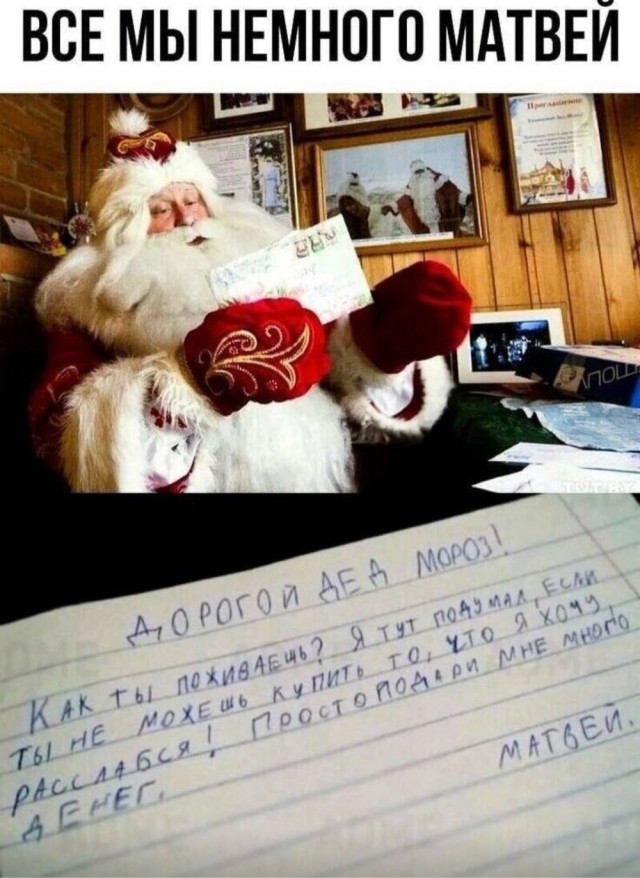 ВСЕ МЫ НЕМНОГО МАТВЕЙ
Приглашение
ПОЧ
TUT.BY
ДОРОГОЙ ДЕД МОРОЗ!
КАК ТЫ ПОЖИВАЕШЬ? Я ТУТ ПОДУМАЛ, ЕСЛИ
ТЫ НЕ МОЖЕШЬ КУПИТЬ ТО, ЧТО Я ХОЧУ,
РАССЛАБСЯ! ПРОСТО ПОДАРИ МНЕ МНОГО
ДЕНЕГ.
МАТВЕЙ.